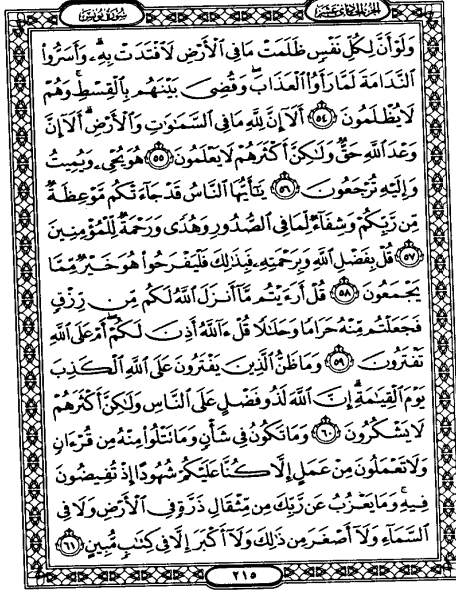 الجزء الحادي عشر
سورة يونس
وَلَوْ أَنَّ لِكُلِّ نَفْسٍ ظَلَمَتْ مَا فِي الْأَرْضِ لَافْتَدَتْ بِهِ ۗ وَأَسَرُّوا
النَّدَامَةَ لَمَّا رَأَوُا الْعَذَابَ ۖ وَقُضِيَ بَيْنَهُم بِالْقِسْطِ ۚ وَهُمْ
لَا يُظْلَمُونَ ٥٤ أَلَا إِنَّ لِلَّهِ مَا فِي السَّمَاوَاتِ وَالْأَرْضِ ۗ أَلَا إِنَّ
وَعْدَ اللَّهِ حَقٌّ وَلَٰكِنَّ أَكْثَرَهُمْ لَا يَعْلَمُونَ ٥٥ هُوَ يُحْيِي وَيُمِيتُ
وَإِلَيْهِ تُرْجَعُونَ ٥٦ يَا أَيُّهَا النَّاسُ قَدْ جَاءَتْكُم مَّوْعِظَةٌ
مِّن رَّبِّكُمْ وَشِفَاءٌ لِّمَا فِي الصُّدُورِ وَهُدًى وَرَحْمَةٌ لِّلْمُؤْمِنِينَ
٥٧ قُلْ بِفَضْلِ اللَّهِ وَبِرَحْمَتِهِ فَبِذَٰلِكَ فَلْيَفْرَحُوا هُوَ خَيْرٌ مِّمَّا
يَجْمَعُونَ ٥٨ قُلْ أَرَأَيْتُم مَّا أَنزَلَ اللَّهُ لَكُم مِّن رِّزْقٍ
فَجَعَلْتُم مِّنْهُ حَرَامًا وَحَلَالًا قُلْ آللَّهُ أَذِنَ لَكُمْ ۖ أَمْ عَلَى اللَّهِ
تَفْتَرُونَ ٥٩ وَمَا ظَنُّ الَّذِينَ يَفْتَرُونَ عَلَى اللَّهِ الْكَذِبَ
يَوْمَ الْقِيَامَةِ ۗ إِنَّ اللَّهَ لَذُو فَضْلٍ عَلَى النَّاسِ وَلَٰكِنَّ أَكْثَرَهُمْ
لَا يَشْكُرُونَ ٦٠ وَمَا تَكُونُ فِي شَأْنٍ وَمَا تَتْلُو مِنْهُ مِن قُرْآنٍ
وَلَا تَعْمَلُونَ مِنْ عَمَلٍ إِلَّا كُنَّا عَلَيْكُمْ شُهُودًا إِذْ تُفِيضُونَ
فِيهِ ۚ وَمَا يَعْزُبُ عَن رَّبِّكَ مِن مِّثْقَالِ ذَرَّةٍ فِي الْأَرْضِ وَلَا فِي
السَّمَاءِ وَلَا أَصْغَرَ مِن ذَٰلِكَ وَلَا أَكْبَرَ إِلَّا فِي كِتَابٍ مُّبِينٍ ٦١
٢١٥